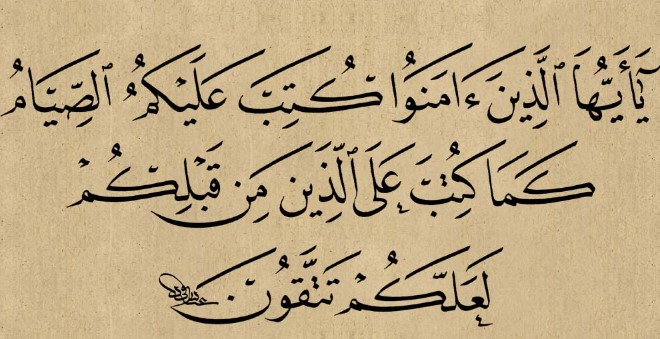 يَٰٓأَيُّهَا ٱلَّذِينَ ءَامَنُوا۟ كُتِبَ عَلَيْكُمُ ٱلصِّيَامُ
كَمَا كُتِبَ عَلَى ٱلَّذِينَ مِن قَبْلِكُمْ
لَعَلَّكُمْ تَتَّقُونَ